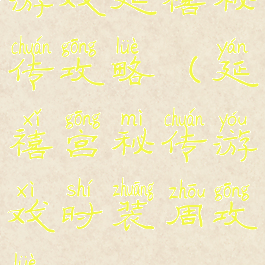 游戏延禧秘
chuán gōng lüè yán
传攻略（延
xǐ gōng mì chuán yóu
禧宫秘传游
xì shí zhuāng zhōu gōng
戏时装周攻
lüè